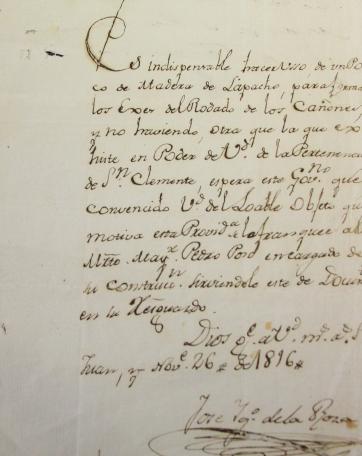 Es indispensable hacer uso, de un Po
co de Madera de Lapacho, para formar
los Exes del Rodado de los Cañones,
y no haviendo, otra que la que exs
histe en Poder de Vd. de la Pertenencia
de Sn. Clemente, espera este Govno. que
convencido Vd. del Loable Objeto que
motiva esta Provida. la franquee al
Mtro. Mayr. Pedro encargado de
la construcn. sirviendole este de Docum
en la Resguardo.
Dios ge. a Vd. ms. as. S
Juan, y Nove. 26 de 1816
José Igo. de la Roza